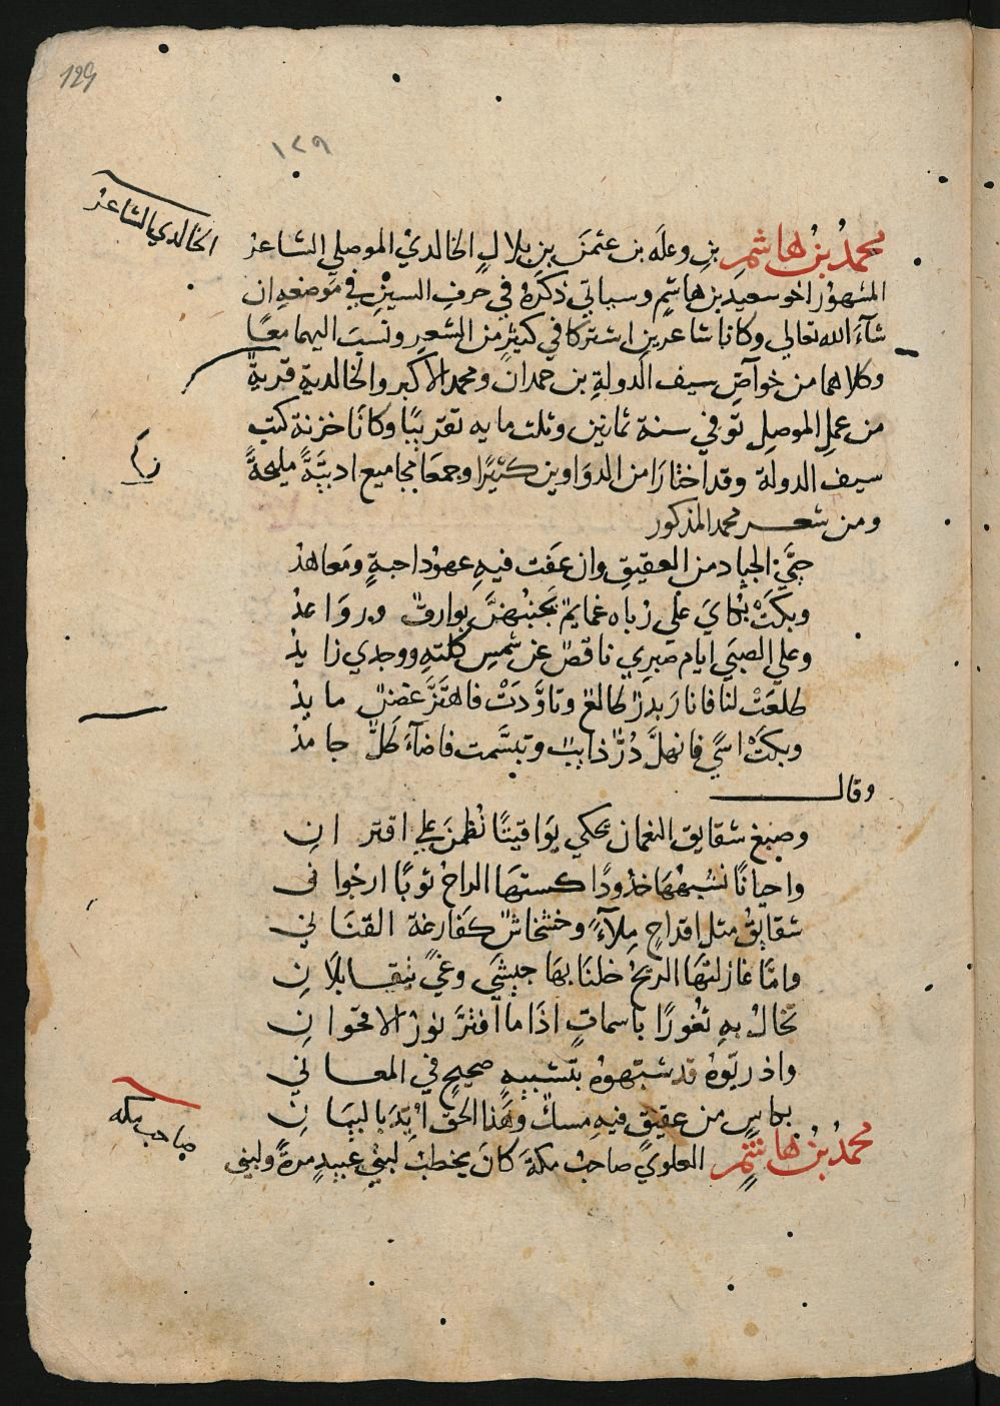 129
١٢٩
الخالدي الشاعر
محمدُ بنُ هاشمِ بنِ وعلَه بن عثمنَ بنِ بلالٍ الخالديُ الموصلي الشاعرُ
المشهوُر اخو سعيد بن هاشمٍ وسياتي ذكرُهُ في حرفِ السينِ في مَوضعهِ ان
شآءَ الله تعالي وكانا شاعرينِ اشتركا في كثيرٍ من الشعرِ ونُسبَ اليهما معًا
وكلاهما من خوآصِّ سيف الدولةِ بن حمدان ومحمد الاكبر والخالدية قريةٌ
من عملِ الموصلِ توفي سنة ثمانين وثلث مايه تقريبًا وكانَا خزنة كتبِ
سيف الدولة وقد اختارَا من الدوَاوين كثيرًا وجمعَا مجاميع ادبيَّةً مليحةً
ومن شعر محمد المذكور
حيَّ الجياد من العقيقِ وان عَفت فيهِ عهوُد احبةٍ ومَعاهدُ
وبكَتْ بُكايَ علي رُباه غمايمٌ بجنبهنَّ بوارقٌ ورَوَاعدُ
وعلي الصبَي ايام صَبرِي ناقصٌ عن شمسِ كلتهِ ووجدي زايدُ
طلعَتْ لنا فانارَ بدرٌ طالعٌ وتاوَّدَتْ فاهتَزَّ غصنٌ مايدُ
وبكَتْ اسًي فانهلَّ دُرٌّ ذايبٌ وتبسَّمت فاضآءَ طَلٌّ جامدُ
وقال
وصبغ شقايق النعمان يحكي يَوَاقيتًا نُظمنَ علي اقتران
واحيانًا نشبههَا خدُودًا كستهَا الراحُ ثوبًا ارجواني
شقايقُ مثل اقداحٍ مِلآءٍ وخشخاشٌ كفَارغة القنَاني
وامَّا غازلتهَا الريحُ خلنَا بهَا جيشَي وغيً يتقابلَانِ
تخالُ بهِ ثغُورًا باسماتٍ اذَا ما افترَّ نورُ الاقحوانِ
واذريُّوهُ قد شبّهوُه بتشبيهٍ صحيحٍ في المعاني
بكاسٍ من عقيقٍ فيهِ مسكٌ وهَذا الحق اُيّدَ بالبيَانِ
صاحب مكه
محمدُ بنُ هاشمٍ العلوي صاحبُ مكةَ كانَ يخطبُ لبني عبيدٍ مرةً ولبني